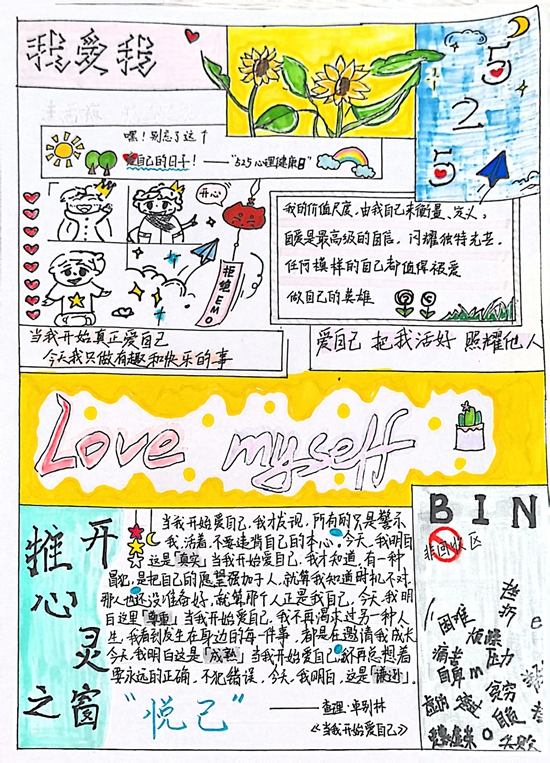 我爱我
5
2
5
嘿！别忘了这个
爱自己的日子！——“525心理健康日”
开心
拒绝EMO
我的价值尺度，由我自己来衡量、定义，
自爱是最高级的自信，闪耀独特光芒。
任何模样的自己都值得被爱
做自己的英雄
当我开始真正爱自己
今天我只做有趣和快乐的事
爱自己 把我活好 照耀他人
Love myself
推开
心灵
之窗
当我开始爱自己，我才发现，所有的只是警示
我，活着，不要违背自己的本心，今天，我明白
这是「真实」当我开始爱自己，我才知道，有一种
冒犯，是把自己的愿望强加于人，就算我知道时机不对，
那人也还没准备好，就算那个人正是我自己，今天，我明
白这里「尊重」当我开始爱自己，我不再渴求过另一种人
生，我看到发生在身边的每一件事，都是在邀请我成长
今天，我明白这是「成熟」当我开始爱自己，不再总想着
要永远的正确，不犯错误，今天，我明白，这是「谦逊」。
“悦己”
——查理·卓别林
《当我开始爱自己》
BIN
非回收区
挫折
e
困难
压力
痛苦
自卑
m
贫穷
自负
o
失败